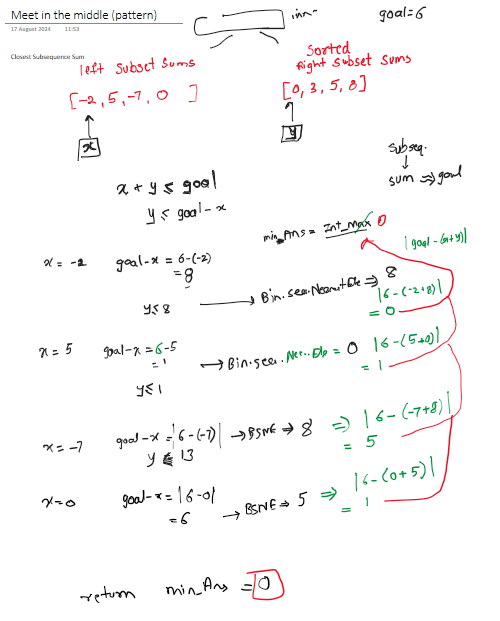 Meet in the middle (pattern)
17 August 2024 11:53
goal=6
Closest Subsequence Sum
left Subset Sums
Sorted
Right Subset Sums
[-2, 5, -7, 0 ]
[0, 3, 5, 8]
x
y
Subseq.
sum => goal
x + y ≤ goal
y ≤ goal - x
min_Ans = Int_Max 0
|goal - (x+y)|
x = -2 goal-x = 6-(-2)
= 8
y ≤ 8 → Bin. sea. Nearest Ele => 8
|6-(-2+8)|
= 0
x = 5 goal-x = 6-5
= 1
→ Bin. sea. Ele = 0 |6-(5+0)|
= 1
y ≤ 1
x = -7 goal-x = |6-(-7)| → BSNE → 8 => |6-(-7+8)|
= 5
y ≤ 13
x = 0 goal-x = |6-0|
= 6
→ BSNE => 5 => |6-(0+5)|
= 1
return min_Ans = 0